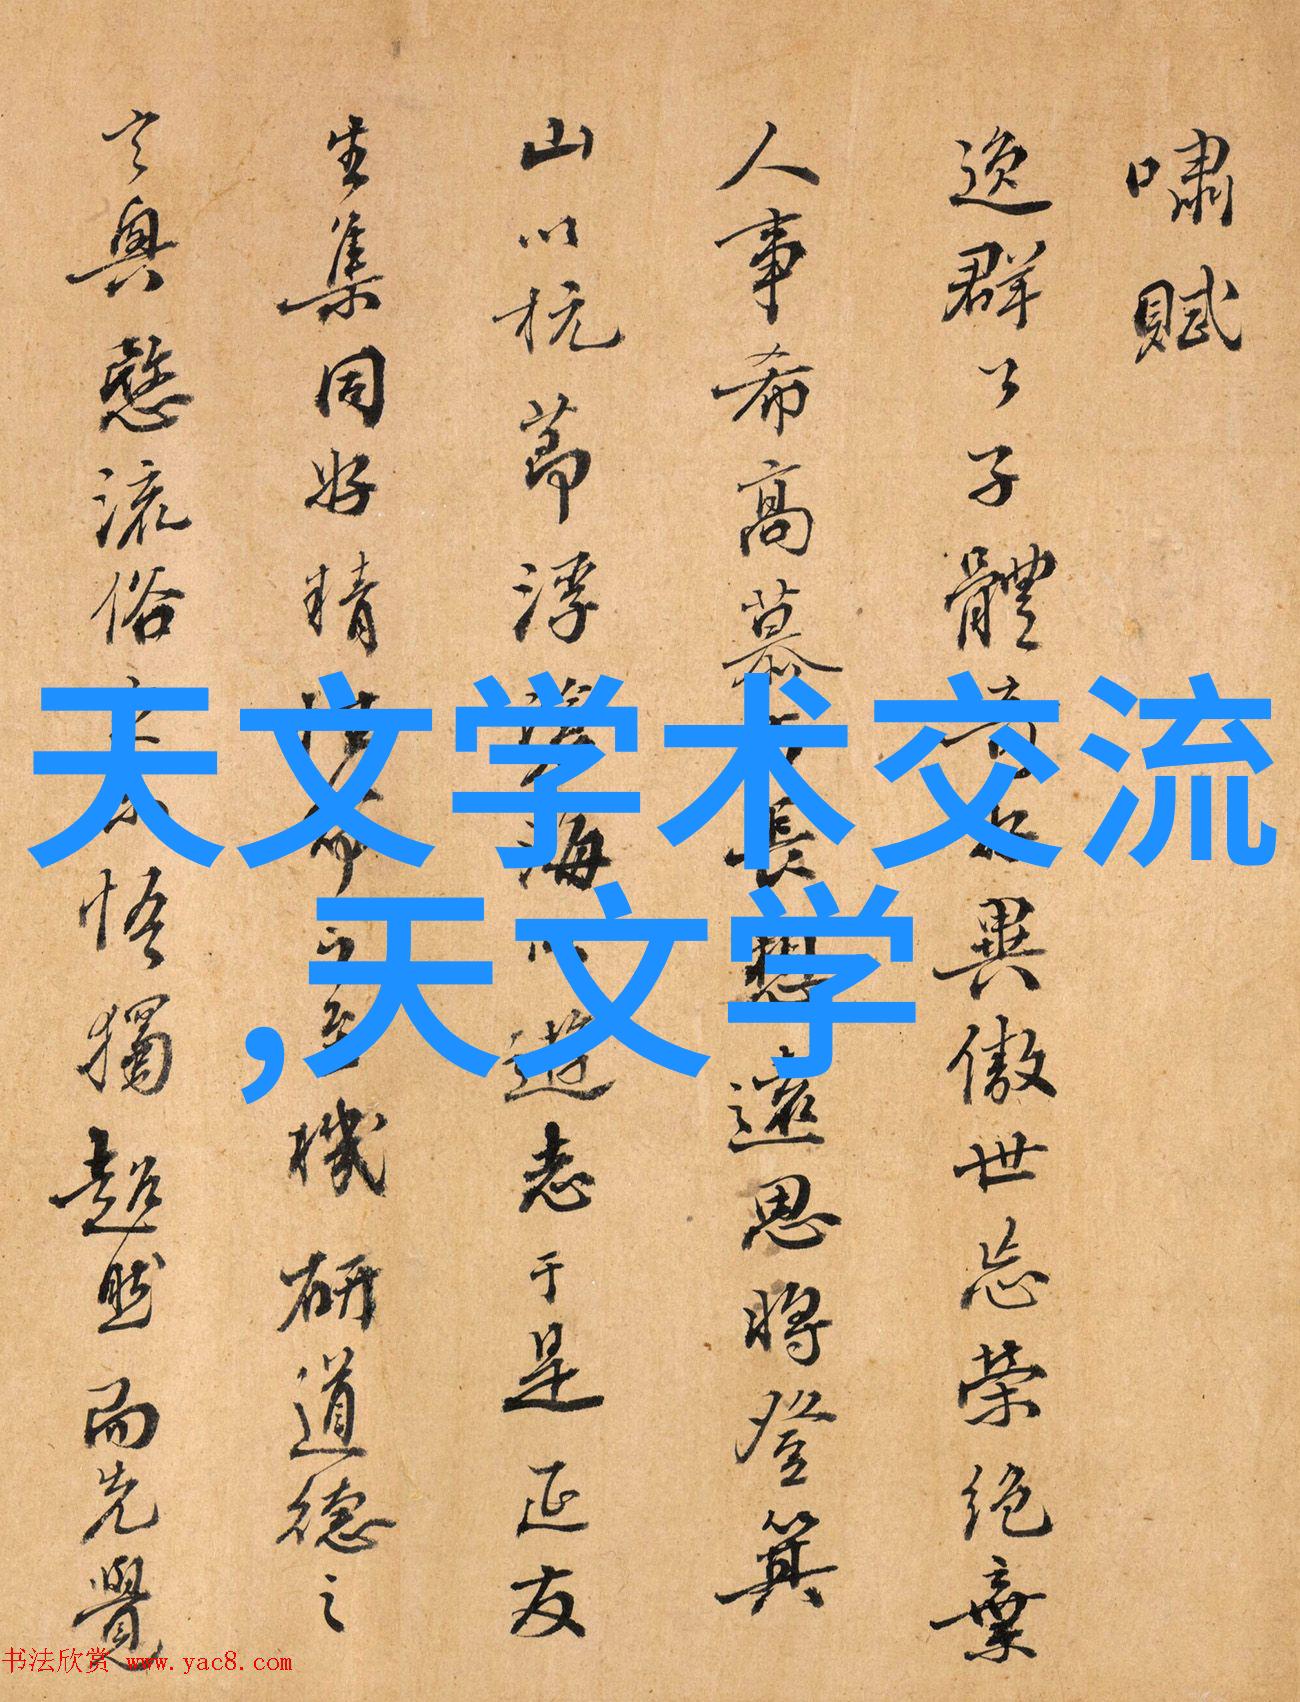 嘯賦
逸群公子體奇好異傲世忘榮絕棄
人事希高慕古長想遠思將登箕
山以抗節浮滄海以遊志于是延友
生集同好精性命之至機研道德之
玄奧愍流俗之未悟獨超然而先覺
天文学术交流
,天文学
书法欣赏 www.yac8.com